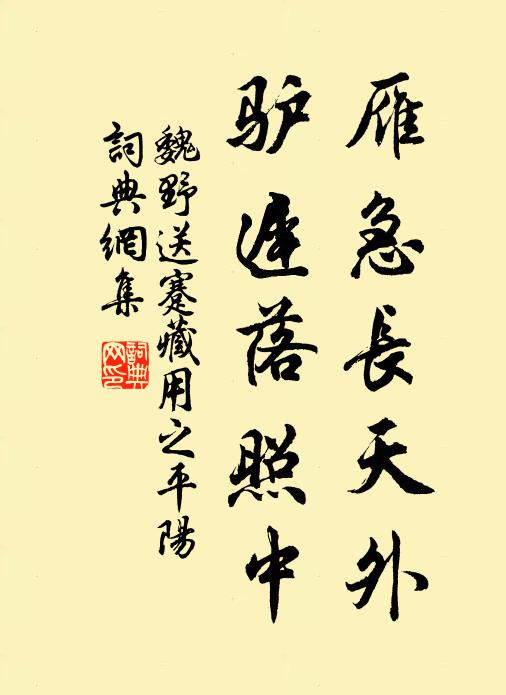 雁急長天外
驴遲落照中
魏野送蹇藏用之平陽
詞典網集
詞典
网印